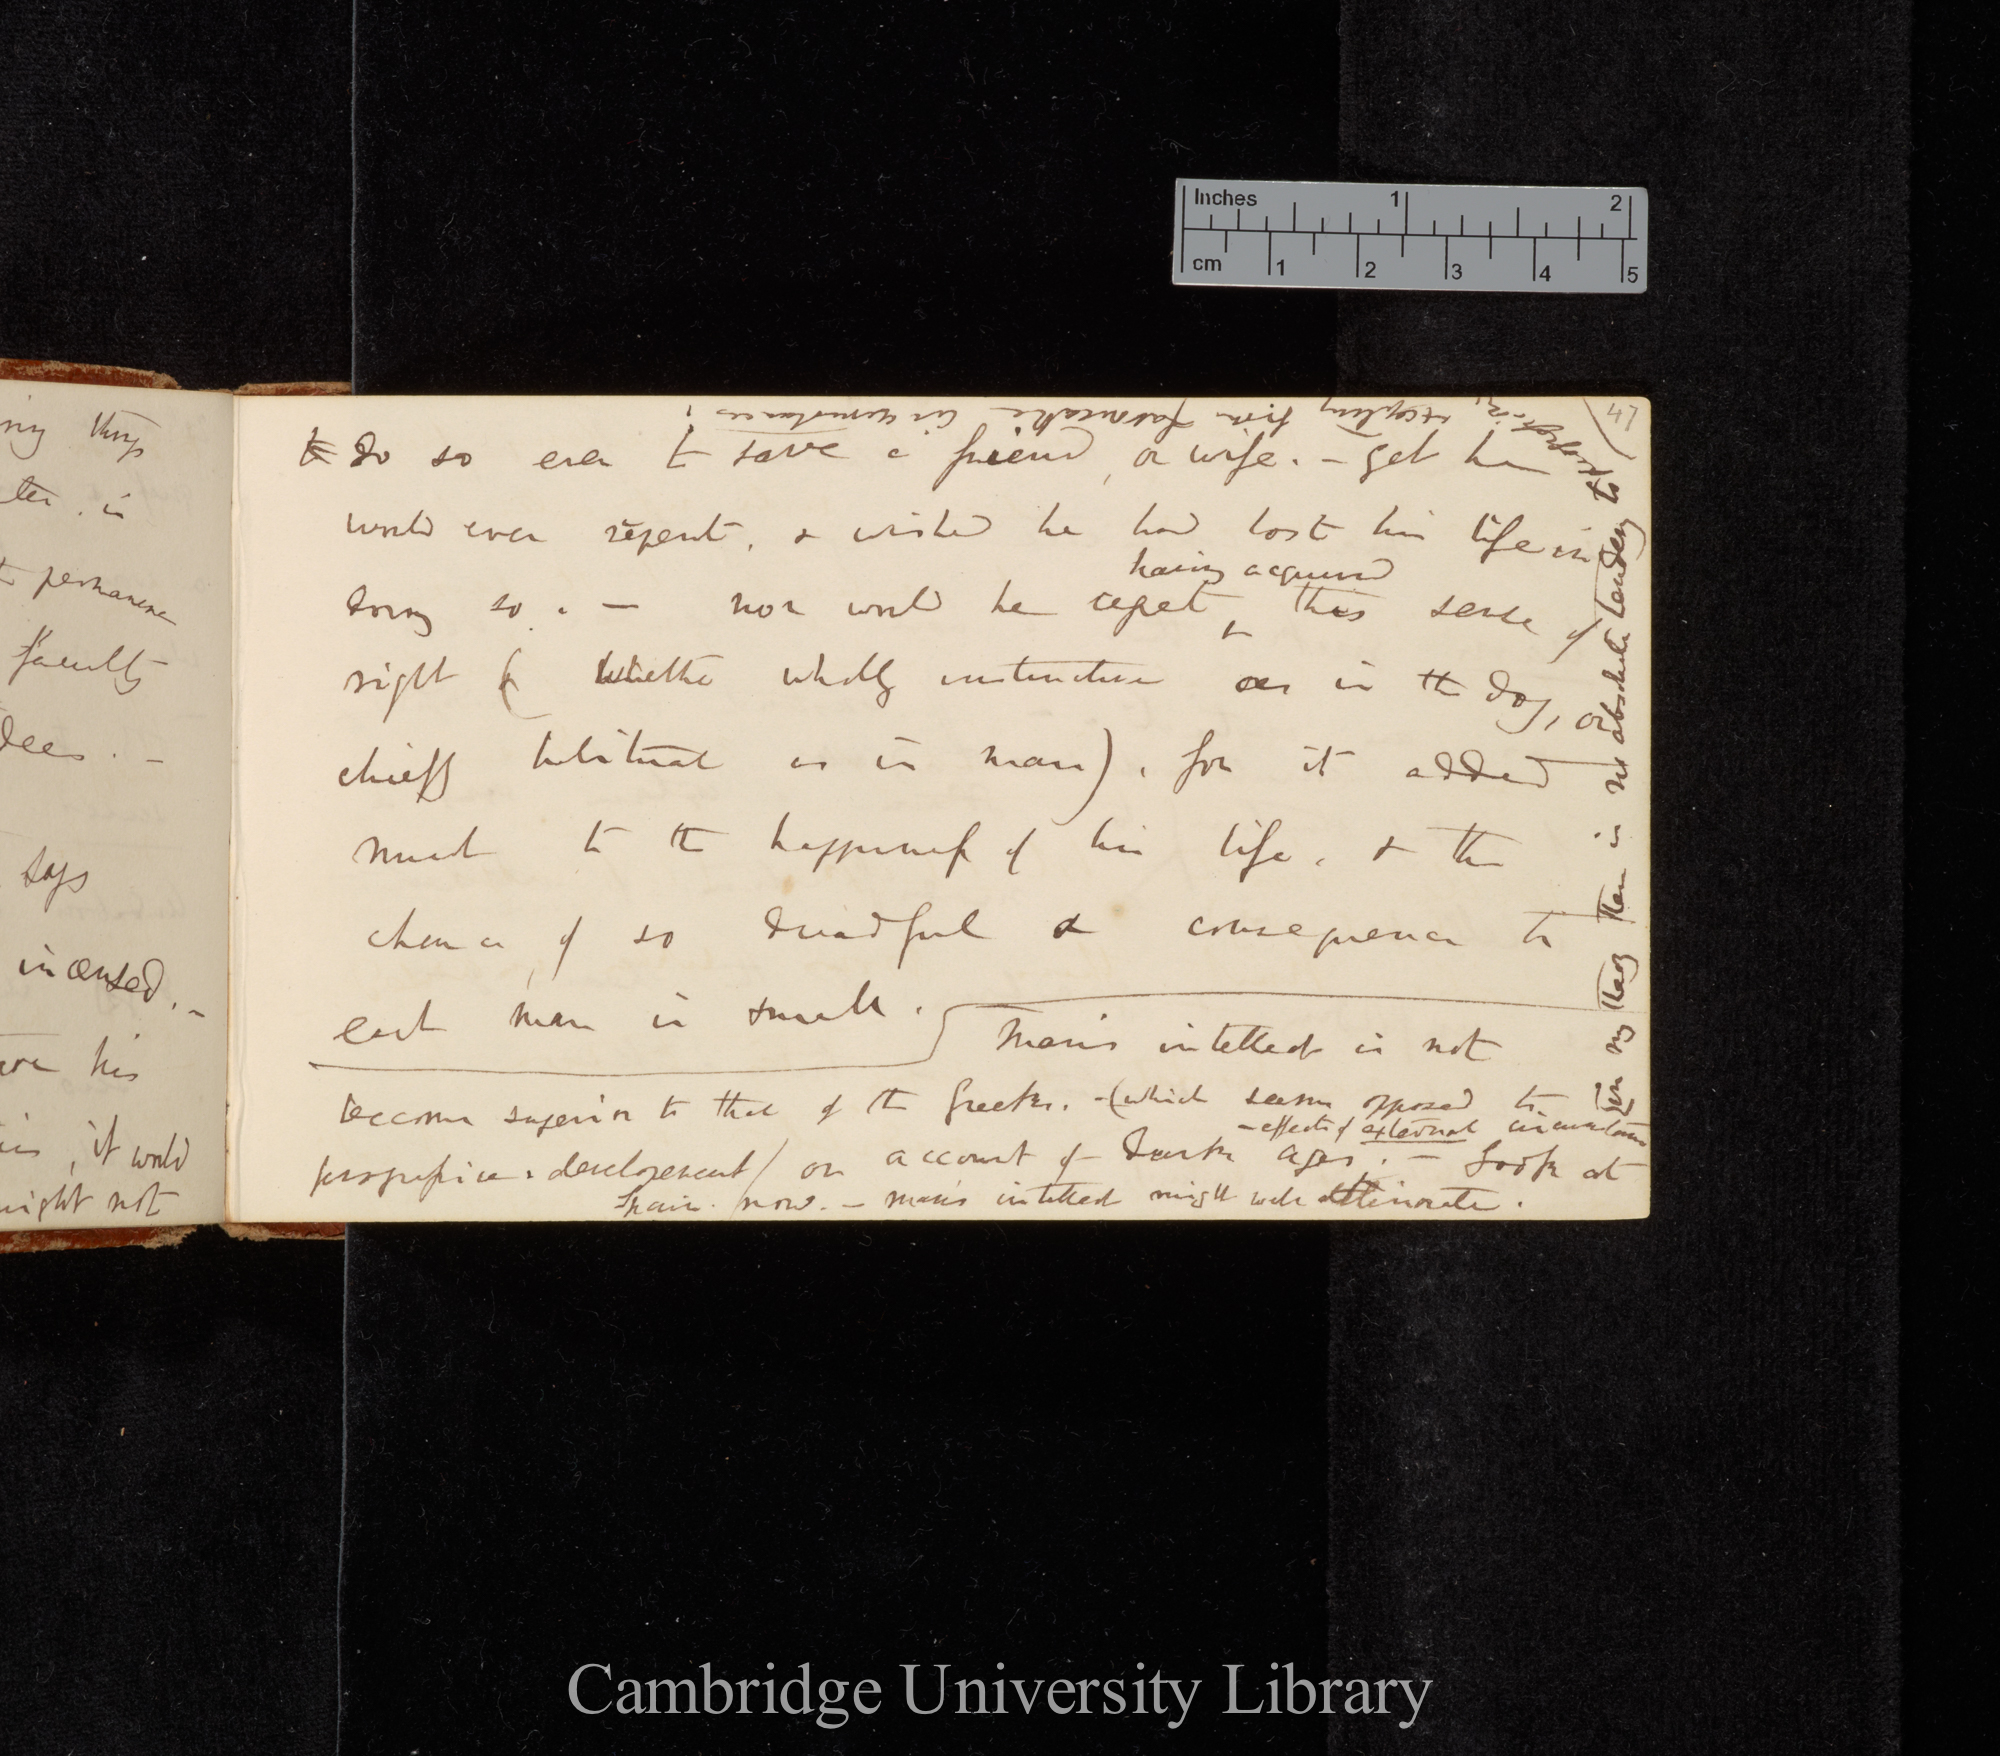 Inches 1 2
cm 1 2 3 4 5
47
to do so even to save a friend, or wife. — yet he
would ever repent, & wished he had lost his life in
having acquired
doing so. — nor would he regret this sense of
right (whether wholly instinctive as in the dog, or
chiefly habitual as in man), for it added
much to the happiness of his life, & the
chance of so dreadful a consequence to
each man is small.
Man's intellect is not
become superior to that of the Greeks. — (which seems opposed to
progressive development) on account of dark ages. — Look at
— effects of external circumstances
Spain now. — man's intellect might well deteriorate.
in my theory there is no absolute tendency to progression, excepting from favourable circumstances!
things
in
permanence
faculty
says
incensed. —
his
it would
might not
Cambridge University Library